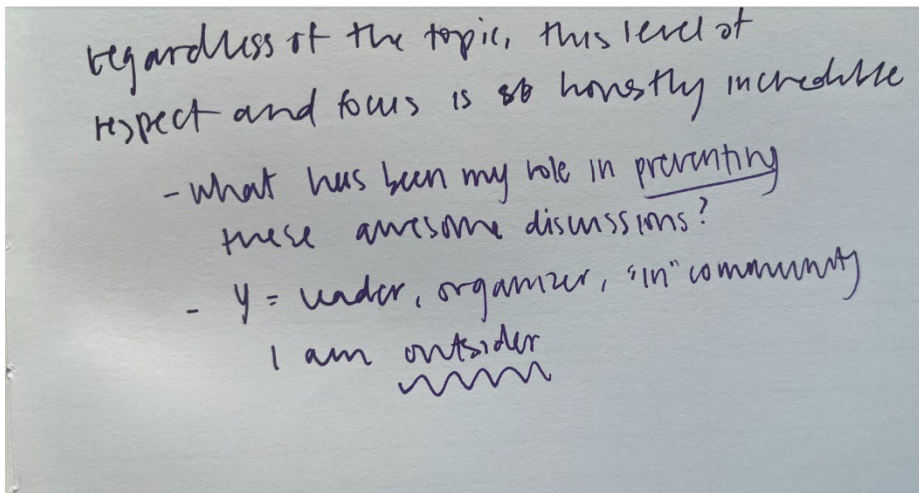 regardless of the topic, this level of
respect and focus is so honestly incredible
- what has been my role in preventing
these awesome discussions?
- Y = leader, organizer, "in" community
I am outsider